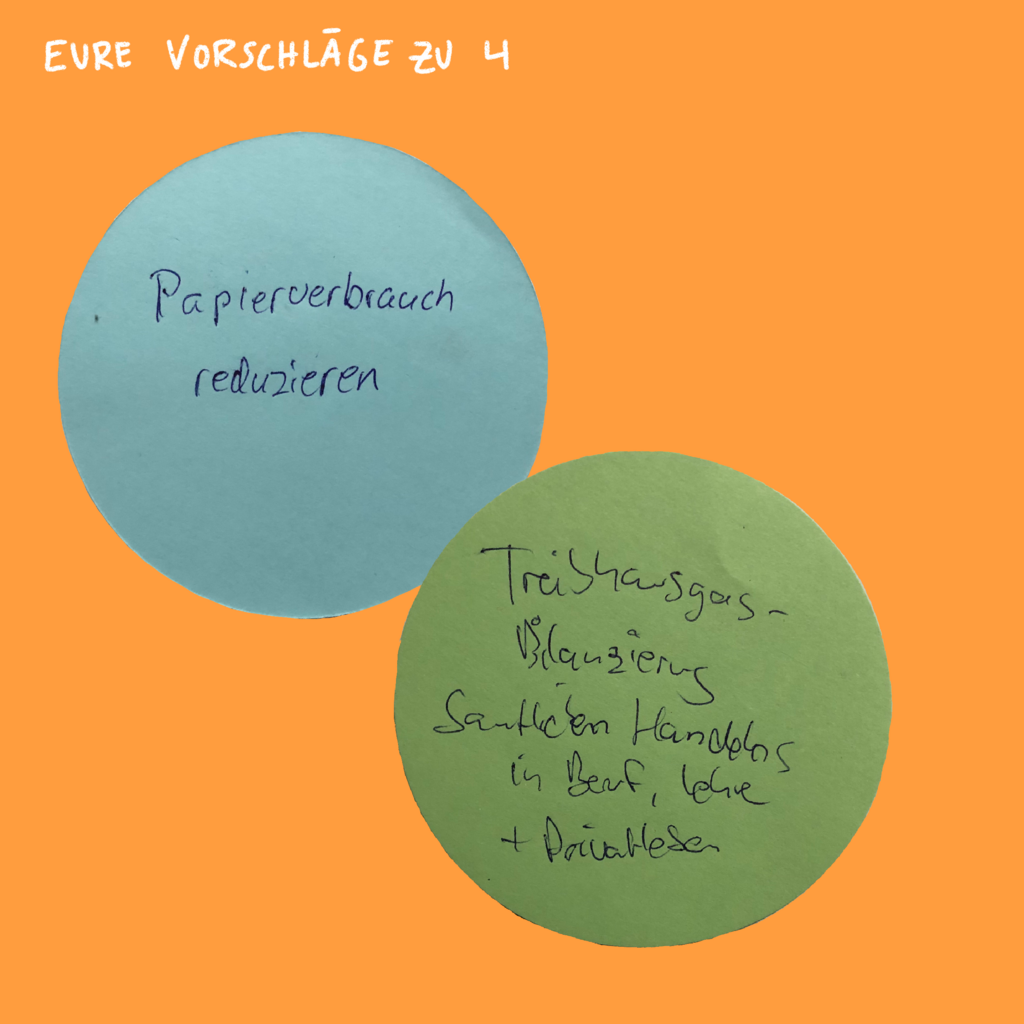 EURE VORSCHLÄGE ZU 4
Papierverbrauch
reduzieren
Treibhausgas-
Bilanzierung
Sämtlichen Handelns
in Beruf, Lehre
+ Privatleben